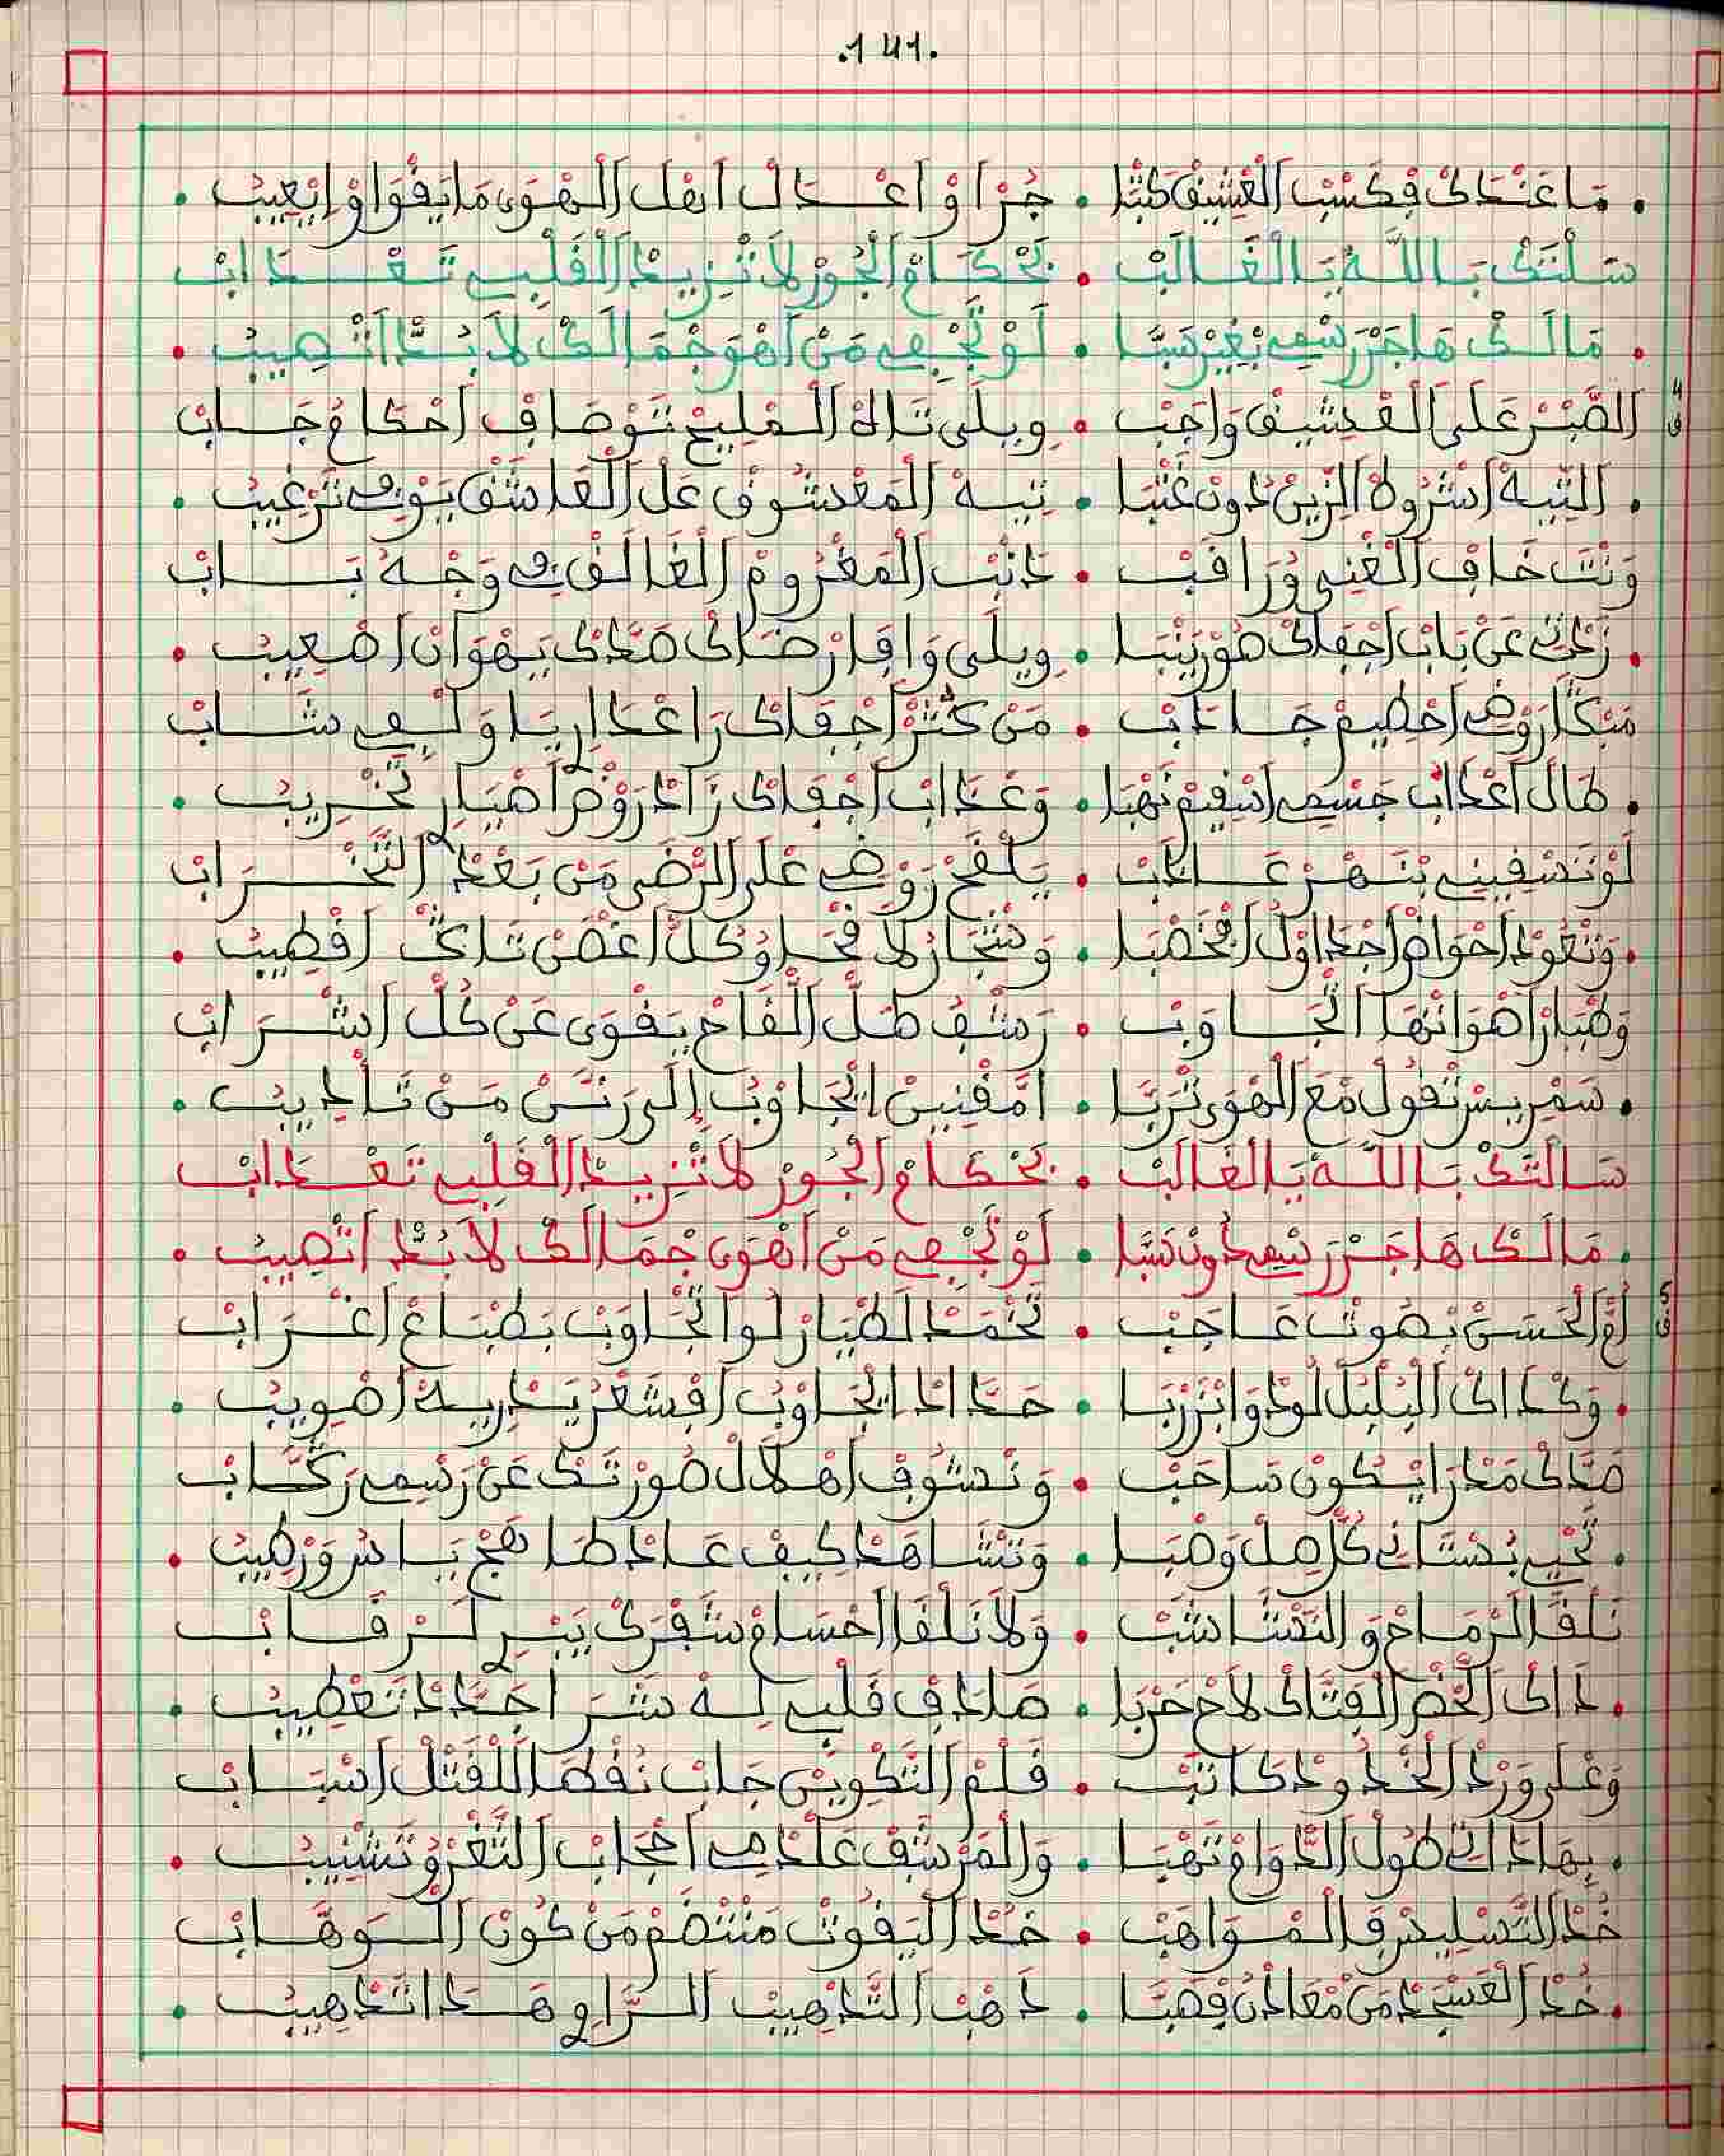 .141.
. مَا عَنْدَكْ فِكَسْبْ الْعْشِيقْ كَتْبَا . جُرْ أَوْ اعْدَلْ اَهْلْ الْهْوَى مَا يَقْوَاوْ إِنْعِيبْ .
سَلْتَكْ بَاللَّهْ يَا الْغَالَبْ . بَحْكَامْ الْجُورْ لاَ تْزِيدْ الْقَلْبِي تَعْدَابْ
. مَالَكْ هَاجَرْ رَسْمِي بْغِيرْ سَبَّا . لَوْ تَجْفِي مَنْ اَهْوَ جْمَالَكْ لاَ بُدَّ اَتْصِيبْ .
4 ق
الصَّبْرْ عَلَى الْعْشِيقْ وَاجَبْ . وِيلَى تَاهْ الْمْلِيحْ تَوْصَافْ احْكَامُ جَابْ
. التِّيهْ اشْرُوطْ الزِّينْ دُونْ عَتْبَا . تِيهْ الْمَعْشُوقْ عَلْ الْعَاشَقْ يَوْرِي تَرْغِيبْ .
وَنْتَ خَافْ الْغْنِي وُرَاقَبْ . دَانْتَ الْمَغْرُومْ الْغَالَقْ فِي وَجْهُ بَابْ
. زَحْتِ عَنْ بَابْ اجْفَاكْ هُوْ رَيْبَا . وِيلَى وَافَا رْضَاكْ صَدَّكْ يَهْوَانْ اصْعِيبْ .
مَنْكَارْ رَوْضِي احْطِيمْ جَادَبْ . مَنْ كَثْرْ اجْفَاكْ رَاعْدَارِ يَا وَلْفِي شَابْ
. طَالْ اعْدَابْ جَسْمِي اسْقِيمْ نَهْبَا . وَعْدَابْ اجْفَاكْ زَادْ رَوْضْ اصْبَارِ تَخْرِيبْ .
لَوْ تَسْقِينِي بْنَهْرْ عَادَبْ . يَلْقَحْ رَوْضِي عْلَى الرّْضَى مَنْ بَعْدْ التَّخْرَابْ
. وَتْعُودْ احْوَاضْ اجْدَاوْلْ امْخَصْبَا . وَشْجَارْ لاَقْحَا وُكَلّْ اغْصَنْ تَاكْ اقْطِيبْ .
وَطْيَارْ اهْوَانْهَا اتْجَاوَبْ . رَشْفْ طَلّْ الْقَاحْ يَقْوَى عَنْ كُلّْ اشْرَابْ
. سَمْرِيسْ تْقُولْ مْعَ الْهْوَى تْرَبَّا . اَمَّقْنِينْ اتْجَاوُبْ إِلَى رَتَّنْ مَنْ تَأْدِيبْ .
سَالْتَكْ بَاللَّهْ يَا الْغَالَبْ . بَحْكَامْ الْجُورْ لاَ تْزِيدْ الْقَلْبِي تَعْدَابْ
. مَالَكْ هَاجَرْ رَسْمِي دُونْ سَبَّا . لَوْ تَجْفِي مَنْ اَهْوَى جْمَالَكْ لاَ بُدَّ اَتْصِيبْ .
5 ق
اُمّْ الْحْسَنْ بْصُوتْ عَاجَبْ . تَحْمَدْ لَطْيَارْ لُو اتْجَاوَبْ بَطْبَاعْ اغْرَابْ
. وَكْدَاكْ الْبُلْبُلْ لُودْ وَابْزَرْبَا . حَدَّادَا اتْجَاوُبْ افْشَعْرْ يَدْرِيهْ اصْوِيبْ .
صَدَّكْ مَدْرَا يْكُونْ سَاحَبْ . وَنْشُوفْ اهْلاَلْ صُورْتَكْ عَنْ رَسْمِي رَكَّابْ
. تَحْيِي بُسْتَانِي كُلّْ صَلْ وَصْبَا . وَنْشَاهَدْ كِيفْ عَادْ طَافَحْ يَا سْرُورْ طِيبْ .
نَلْقَا الرّْمَاحْ وَالنَّشَّاشَبْ . وَلاَ نَلْقَا احْسَامْ شَفْرَكْ يَبْرِ لَرْقَابْ
. دَاكْ اللَّحْضْ الْفَتَّاكْ لاَحْ حَرْبَا . صَادَفْ قَلْبِي لَهْ شَرْ احْدَادْ تَعْطِيبْ .
وَعْلَى وَرْدْ الْخَدّْ وَدْكَاتَبْ . قَلْمْ التَّكْوِينْ جَابْ نُقْطَا لَلْقَتْلْ اسْبَابْ
. بِهَا دَانِي طُولْ الدّْوَامْ نَهْبَا . وَالْمَرْشَفْ عَلْدَمِي احْجَابْ الثَّغْرْ وْتَشْنِيبْ .
خُدْ التَّسْلِيسْ فَالْمْوَاهَبْ . خُدْ الْيَقُوتْ مَنْتْضَمْ مَنْ كُونْ الْوَهَّابْ
. خُدْ الْعَسْجَدْ مَنْ مْعَادْنُ قَصْبَا . دَهْبْ التَّدْهِيبْ الرَّاوِ هَدَا تَدْهِيبْ .